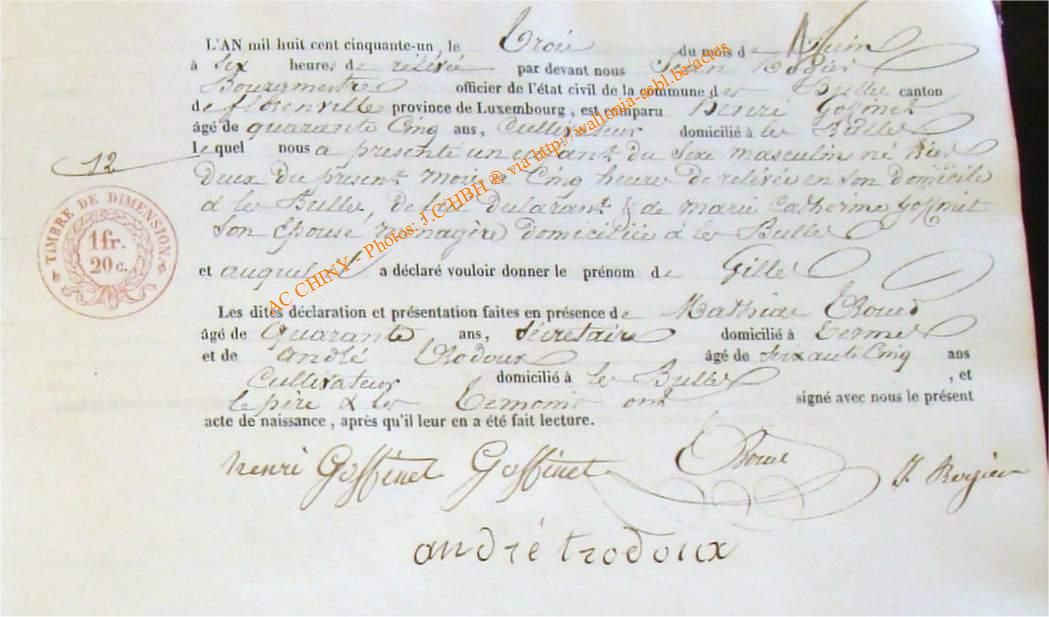 L'AN mil huit cent cinquante-un, le Trois du mois de Juin
à Six heures de rélévée par devant nous Rogier
Bourgmestre officier de l'état civil de la commune des Bulles canton
de florenville province de Luxembourg, est comparu Henri Goffinet
âgé de quarante Cinq ans, Cultivateur domicilié à les Bulles
lequel nous a présenté un enfant du Sexe masculin né hier
12
deux du présent mois à Cinq heures de relévée en son domicile
à les Bulles, de lui déclarant & de marie Catherine Goffinet
Son épouse Ménagère domiciliée à les Bulles
et auquel il a déclaré vouloir donner le prénom de Gilles
TIMBRE DE DIMENSION
1 fr.
20 c.
Les dites déclaration et présentation faites en présence de Mathias
âgé de Quarante ans, Sécretaire domicilié à Termes
et de André Trodoux âgé de Soixante Cinq ans
Cultivateur domicilié à les Bulles, et
le père & les témoins ont signé avec nous le présent
acte de naissance, après qu'il leur en a été fait lecture.
henri Goffinet Goffinet J. Rogier
andré trodoux
AC CHINY - Photos: J.C HBH ® via http://wallonia-asbl.be/actes